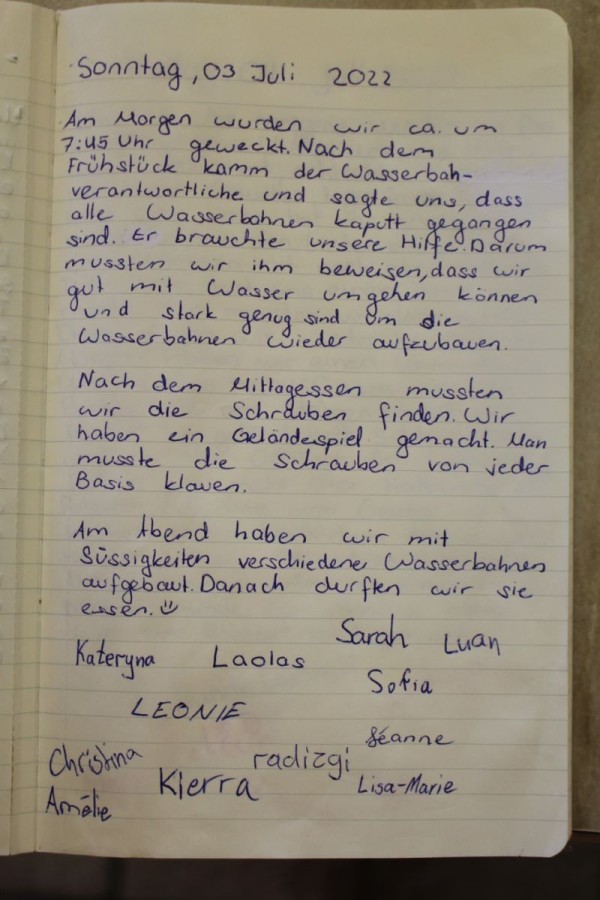 Sonntag, 03 Juli 2022
Am Morgen wurden wir ca. um
7:45 Uhr geweckt. Nach dem
Frühstück kamm der Wasserbah-
verantwortliche und sagte uns, dass
alle Wasserbahnen kaputt gegangen
sind. Er brauchte unsere Hilfe. Darum
mussten wir ihm beweisen, dass wir
gut mit Wasser umgehen können
und stark genug sind um die
Wasserbahnen wieder aufzubauen.
Nach dem Mittagessen mussten
wir die Schrauben finden. Wir
haben ein Geländespiel gemacht. Man
musste die Schrauben von jeder
Basis klauen.
Am Abend haben wir mit
Süssigkeiten verschiedene Wasserbahnen
aufgebaut. Danach durften wir sie
essen. ☺
Sarah Luan
Kateryna Laolas
Sofia
LEONIE
Jéanne
Christina radizgi
Kierra Lisa-Marie
Amélie